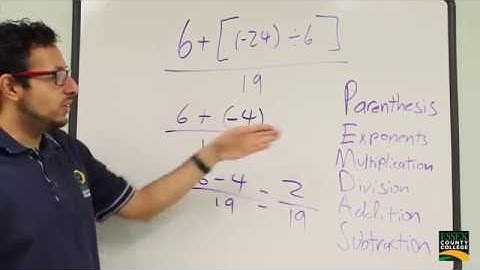 6 + [(-24) ÷ 6]
19
6 + (-4)
6 - 4 = 2
19 19
Parenthesis
Exponents
Multiplication
Division
Addition
Subtraction
ESSEX
COUNTY
COLLEGE